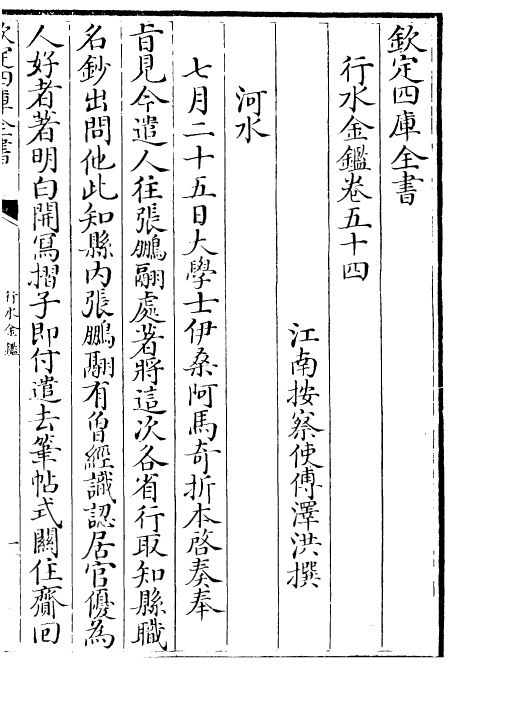 欽定四庫全書
行水金鑑卷五十四
江南按察使傅澤洪撰
河水
七月二十五日大學士伊桑阿馬奇折本啓奏奉
㫖見今遣人往張鵬翮處著將這次各省行取知縣職
名鈔出問他此知縣内張鵬翮有曾經識認居官優為
人好者著明白開寫摺子即付遣去筆帖式關住齎回
欽定四庫全書
行水金鑑
一